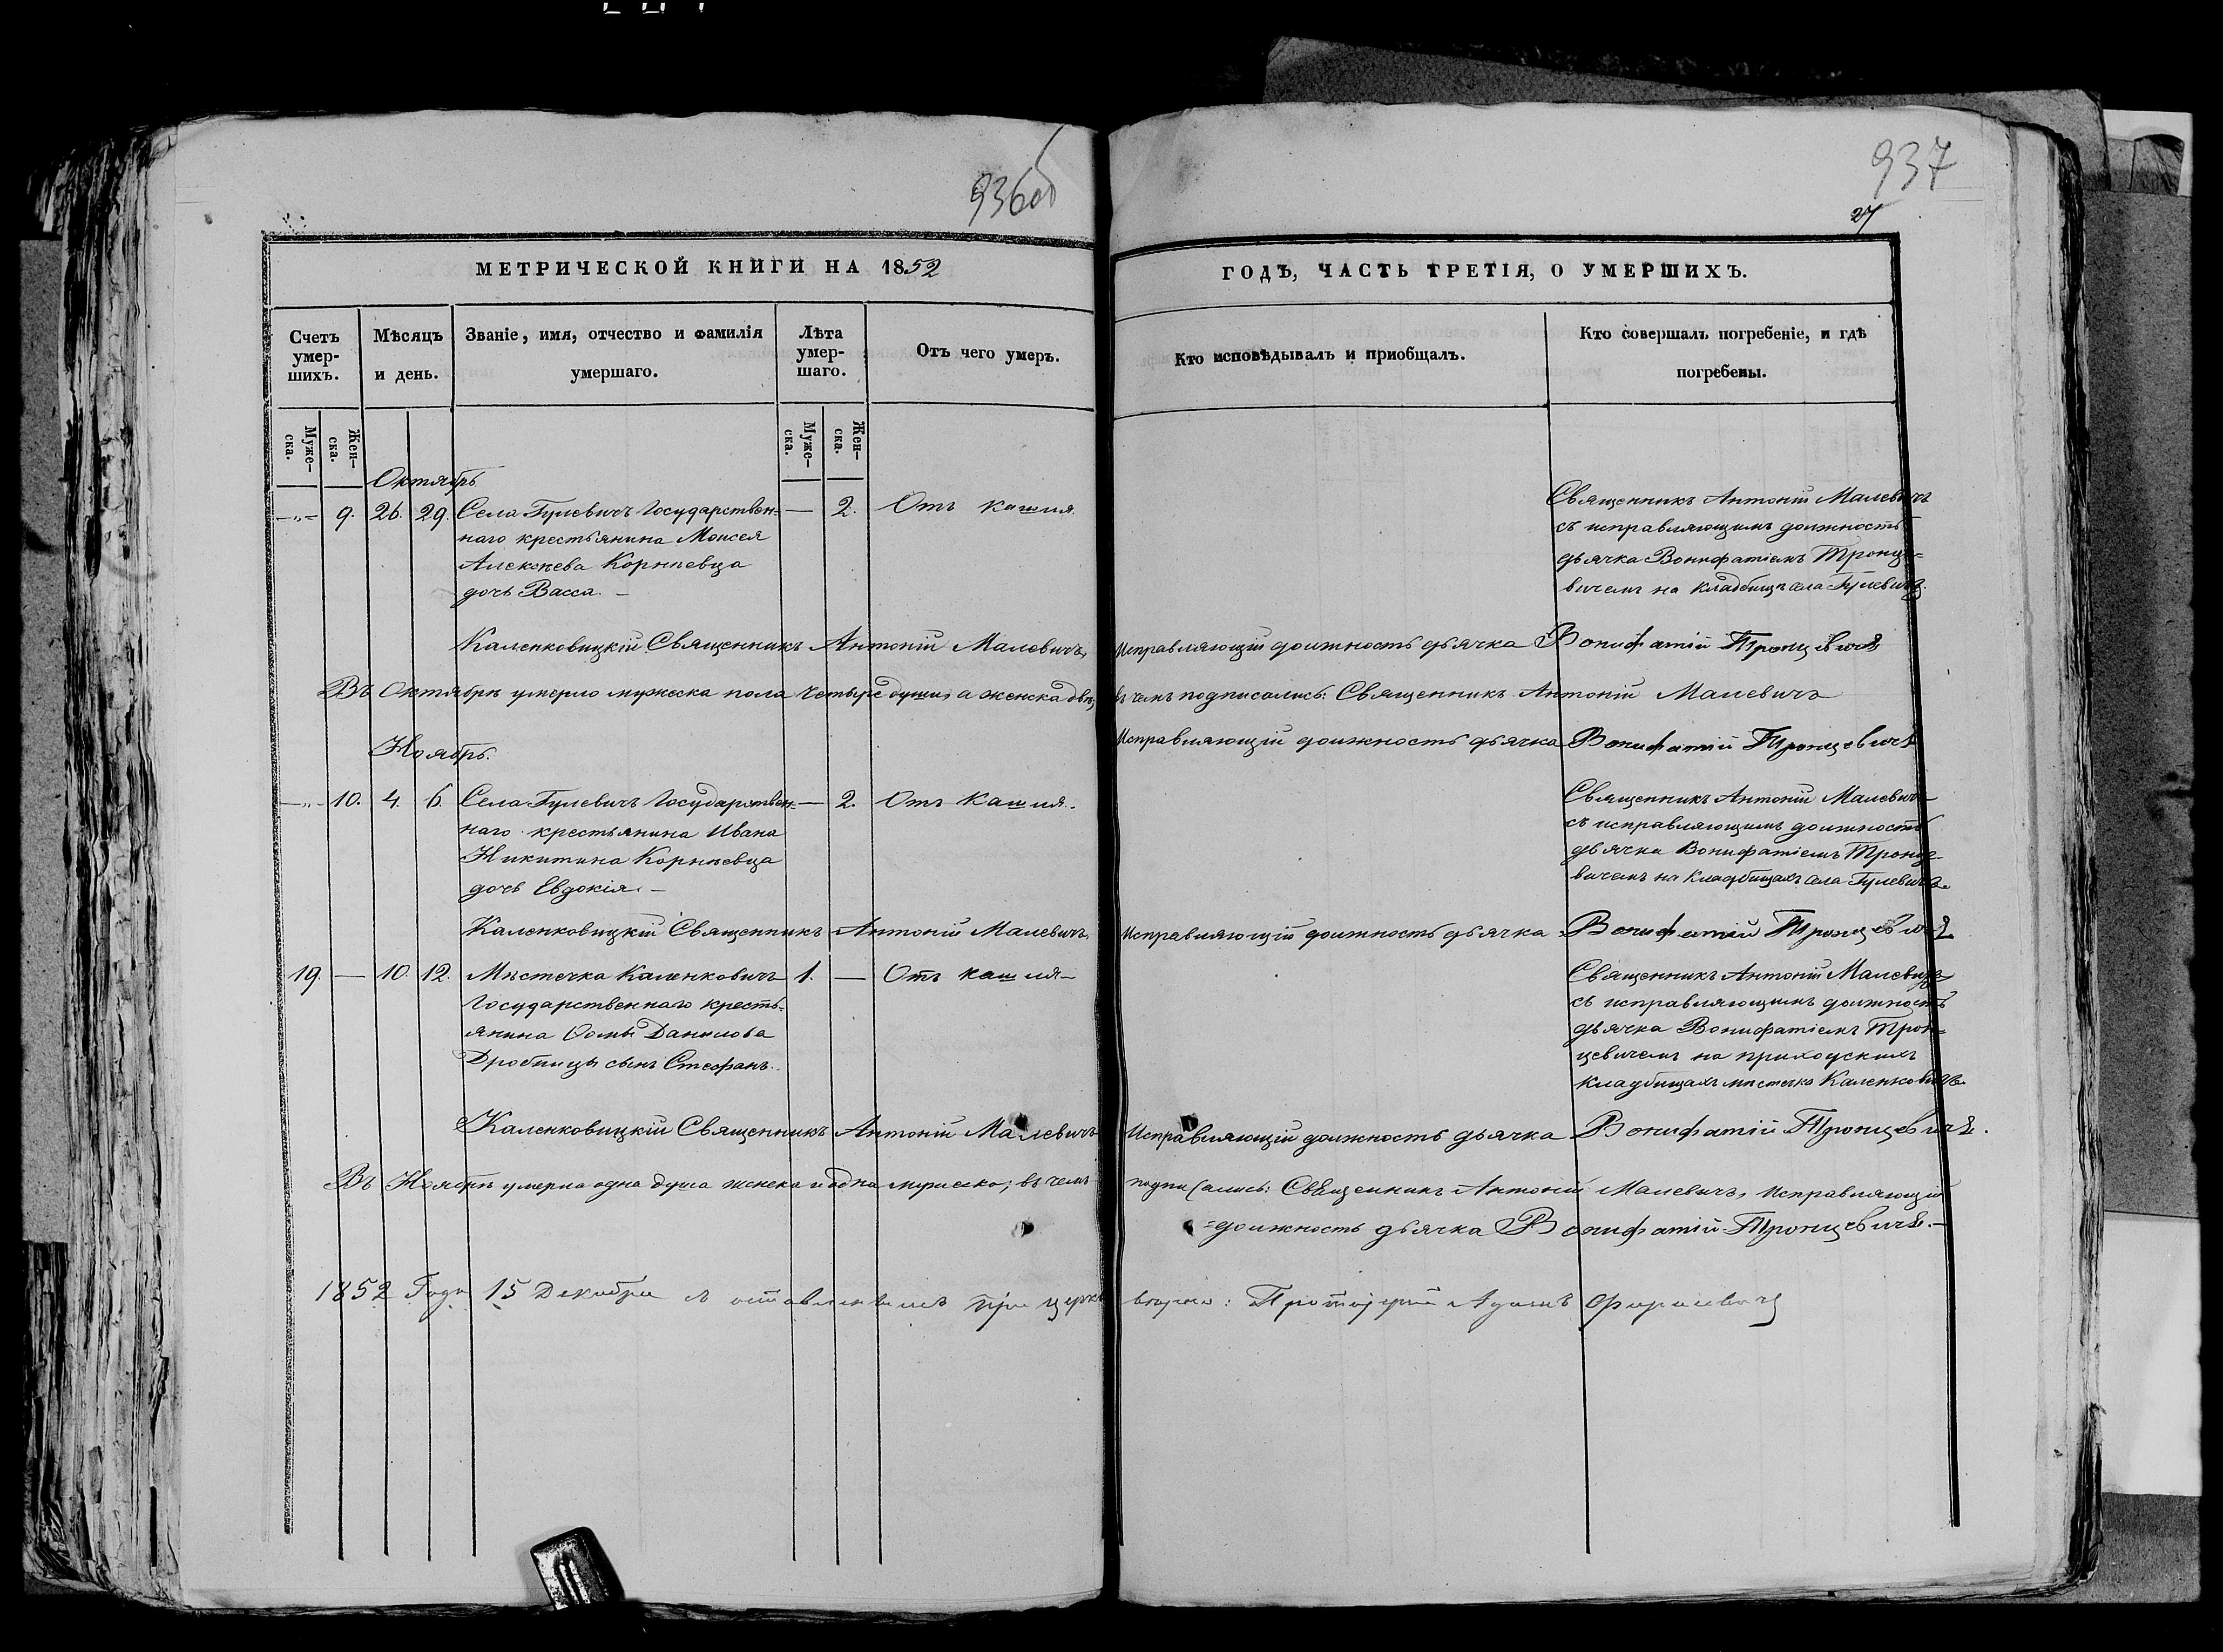 936об
937
27
МЕТРИЧЕСКОЙ КНИГИ НА 1852
ГОДЪ, ЧАСТЬ ТРЕТІЯ, О УМЕРШИХЪ.
Счетъ умер-шихъ.
Мѣсяцъ и день.
Званіе, имя, отчество и фамилія умершаго.
Лѣта умер-шаго.
Отъ чего умеръ.
Кто исповѣдывалъ и приобщалъ.
Кто совершалъ погребеніе, и гдѣ погребены.
Муже-ска.
Жен-ска.
Муже-ска.
Жен-ска.
Октябрь
—„— 9. 26. 29. Села Гулевичъ Государствен= — 2. Отъ кашля.
наго крестьянина Моисея
Алексѣева Корнѣевца
дочь Васса. —
Священникъ Антоній Малевичъ
съ исправляющимъ должность
дьячка Вонифатіемъ Тронце=
вичемъ на кладбищѣ села Гулевичъ.
Каленковицкій Священникъ Антоній Малевичъ, Исправляющій должность дьячка Вонифатій Тронцевичъ
Въ Октябрѣ умерло мужеска пола четыре души, а женска двѣ; въ чемъ подписались: Священникъ Антоній Малевичъ
Исправляющій должность дьячка Вонифатій Тронцевичъ
Ноябрь.
—„— 10. 4. 6. Села Гулевичъ Государствен- — 2. Отъ кашля.
наго крестьянина Ивана
Никитина Корнѣевца
дочь Евдокія. —
Священникъ Антоній Малевичъ
съ исправляющимъ должность
дьячка Вонифатіемъ Тронце-
вичемъ на кладбищахъ села Гулевичъ.
Каленковицкій Священникъ Антоній Малевичъ, Исправляющій должность дьячка Вонифатій Тронцевичъ
19. — 10. 12. Мѣстечка Каленковичъ 1. — Отъ кашля —
Государственнаго кресть-
янина Ѳомы Данилова
Дробницы сынъ Стефанъ.
Священникъ Антоній Малевичъ
съ исправляющимъ должность
дьячка Вонифатіемъ Трон=
цевичемъ на приходскихъ
кладбищахъ мѣстечка Каленковичъ.
Каленковицкій Священникъ Антоній Малевичъ Исправляющій должность дьячка Вонифатій Тронцевичъ.
Въ Ноябрѣ умерла одна душа женска и одна мужеска; въ чемъ подписались: Священникъ Антоній Малевичъ, Исправляющій
=должность дьячка Вонифатій Тронцевичъ. —
1852 Года 15 Декабря съ оставленіемъ при церкви Протоіерей Адамъ